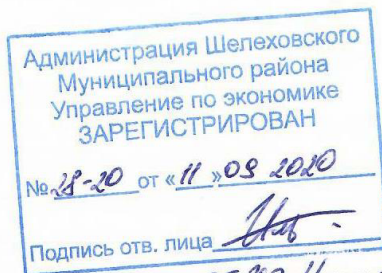 Администрация Шелеховского
Муниципального района
Управление по экономике
ЗАРЕГИСТРИРОВАН
№ 28-20 от «11» 09 2020
Подпись отв. лица